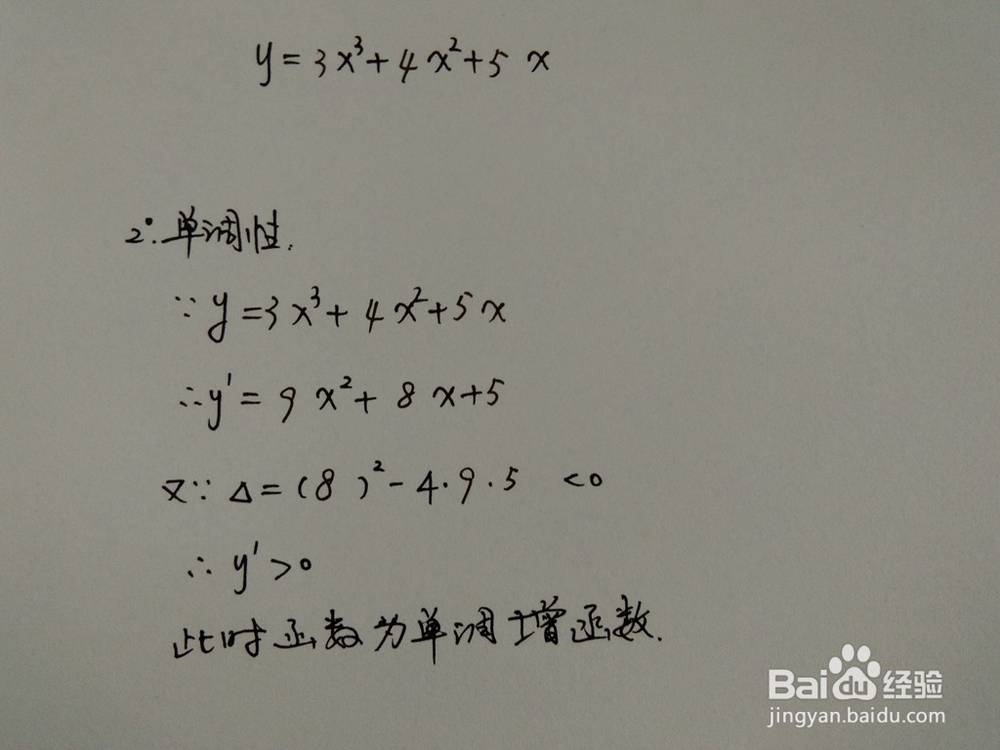 y=3x³+4x²+5x
2°.单调性.
∵y=3x³+4x²+5x
∴y'=9x²+8x+5
又∵Δ=(8)²-4·9·5 <0
∴y'>0
此时函数为单调增函数.
Baidu经验
jingyan.baidu.com